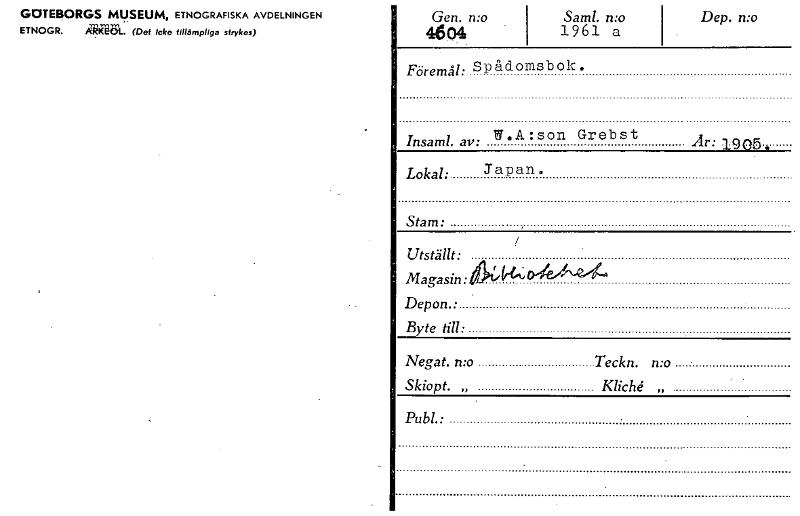 GÖTEBORGS MUSEUM, ETNOGRAFISKA AVDELNINGEN
ETNOGR. ARKEOL. (Det icke tillämpliga strykes)
Gen. n:o Saml. n:o Dep. n:o
4604 1961 a
Föremål: Spådomsbok.
Insaml. av: W.A:son Grebst År: 1905.
Lokal: Japan.
Stam:
Utställt:
Magasin: Biblioteket
Depon.:
Byte till:
Negat. n:o Teckn. n:o
Skiopt. „ Kliché „
Publ.: